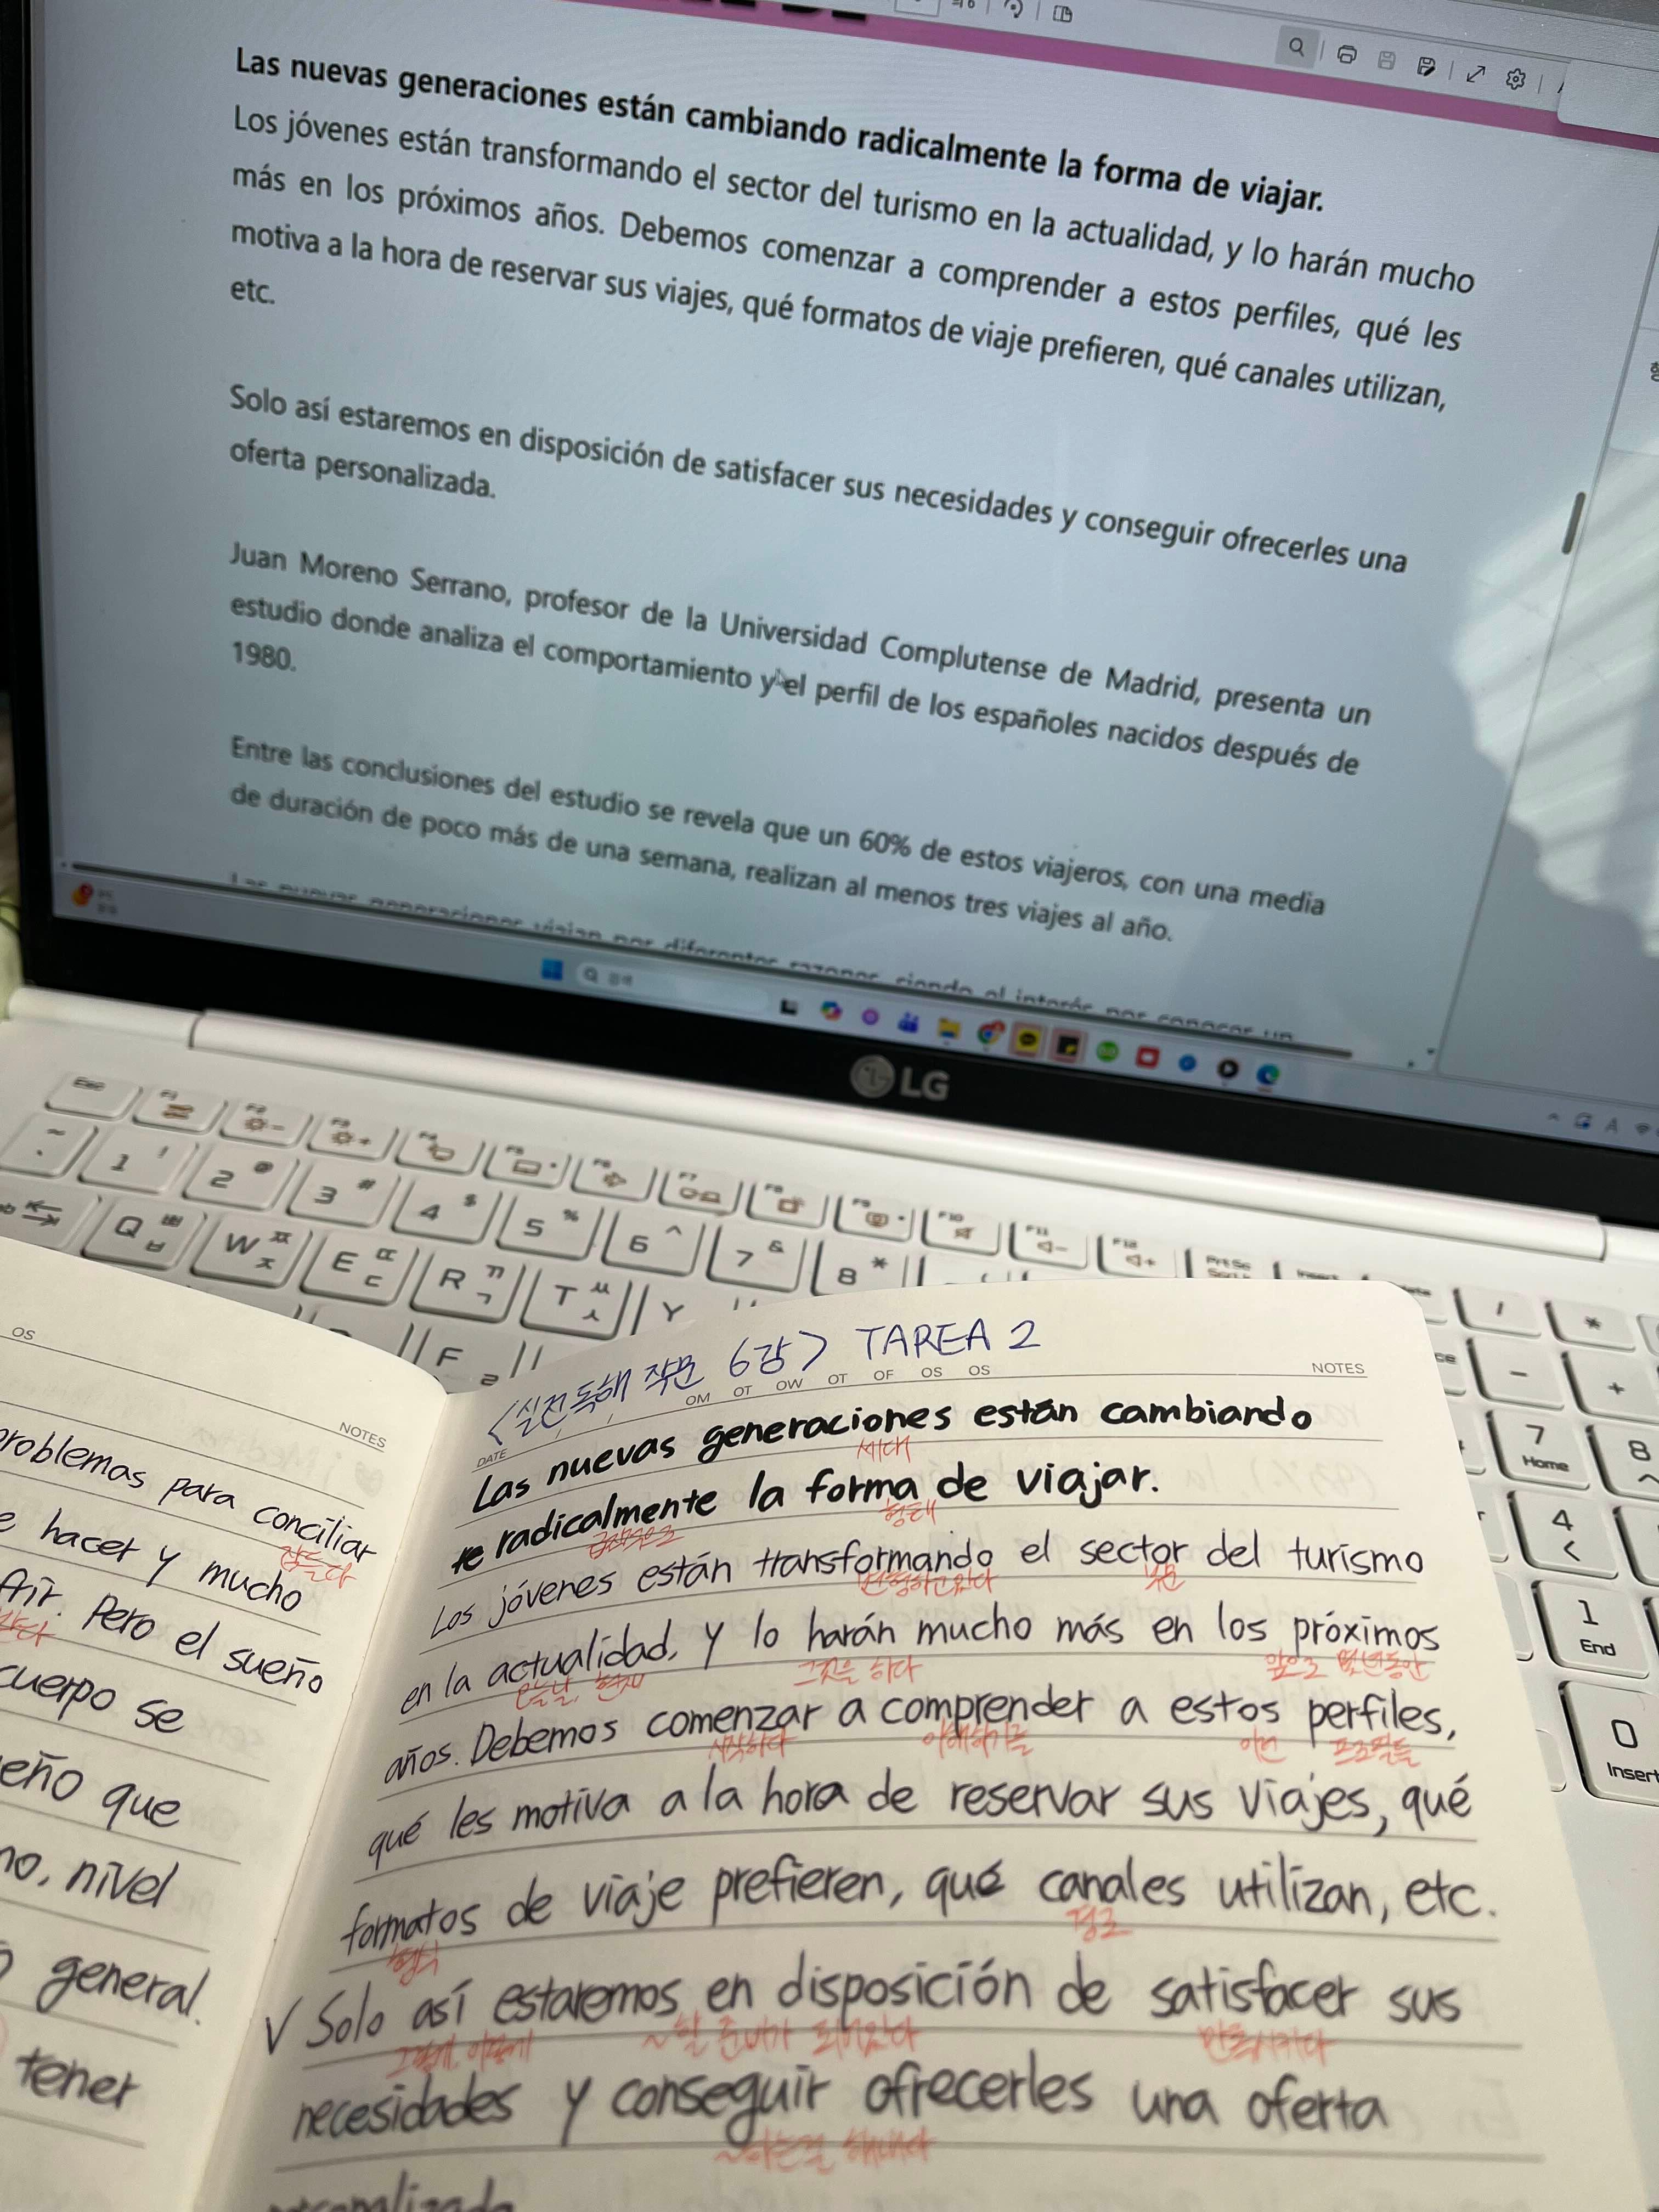 Las nuevas generaciones están cambiando radicalmente la forma de viajar.
Los jóvenes están transformando el sector del turismo en la actualidad, y lo harán mucho
más en los próximos años. Debemos comenzar a comprender a estos perfiles, qué les
motiva a la hora de reservar sus viajes, qué formatos de viaje prefieren, qué canales utilizan,
etc.
Solo así estaremos en disposición de satisfacer sus necesidades y conseguir ofrecerles una
oferta personalizada.
Juan Moreno Serrano, profesor de la Universidad Complutense de Madrid, presenta un
estudio donde analiza el comportamiento y el perfil de los españoles nacidos después de
1980.
Entre las conclusiones del estudio se revela que un 60% de estos viajeros, con una media
de duración de poco más de una semana, realizan al menos tres viajes al año.
LG
Esc F1 F2 F3 F4
1 ! 2 @ 3 # 4 $ 5 % 6 ^ 7 & 8 *
Q ㅃ ㅂ W ㅉ ㅈ E ㄸ ㄷ R ㄲ ㄱ T ㅆ ㅅ Y
F ㄹ
7 Home 8
4 <
1 End
0 Insert
OS
NOTES
problemas para conciliar
잠들다
e hacer y mucho
Pero el sueño
cuerpo se
eño que
no, nivel
general.
tener
<실전독해 작문 6강> TAREA 2
DATE / / OM OT OW OT OF OS OS NOTES
Las nuevas generaciones están cambiando
세대
te radicalmente la forma de viajar.
급격적으로 형태
Los jóvenes están transformando el sector del turismo
변형하고있다 부문
en la actualidad, y lo harán mucho más en los próximos
오늘날, 현재 그것을 하다 앞으로 몇년동안
años. Debemos comenzar a comprender a estos perfiles,
시작하다 이해하기를 이런 프로필들
qué les motiva a la hora de reservar sus viajes, qué
formatos de viaje prefieren, qué canales utilizan, etc.
형식 경로
√ Solo así estaremos en disposición de satisfacer sus
그렇게, 이렇게 ~할 준비가 되어있다 만족시키다
necesidades y conseguir ofrecerles una oferta
~하는걸 해내다
personalizada